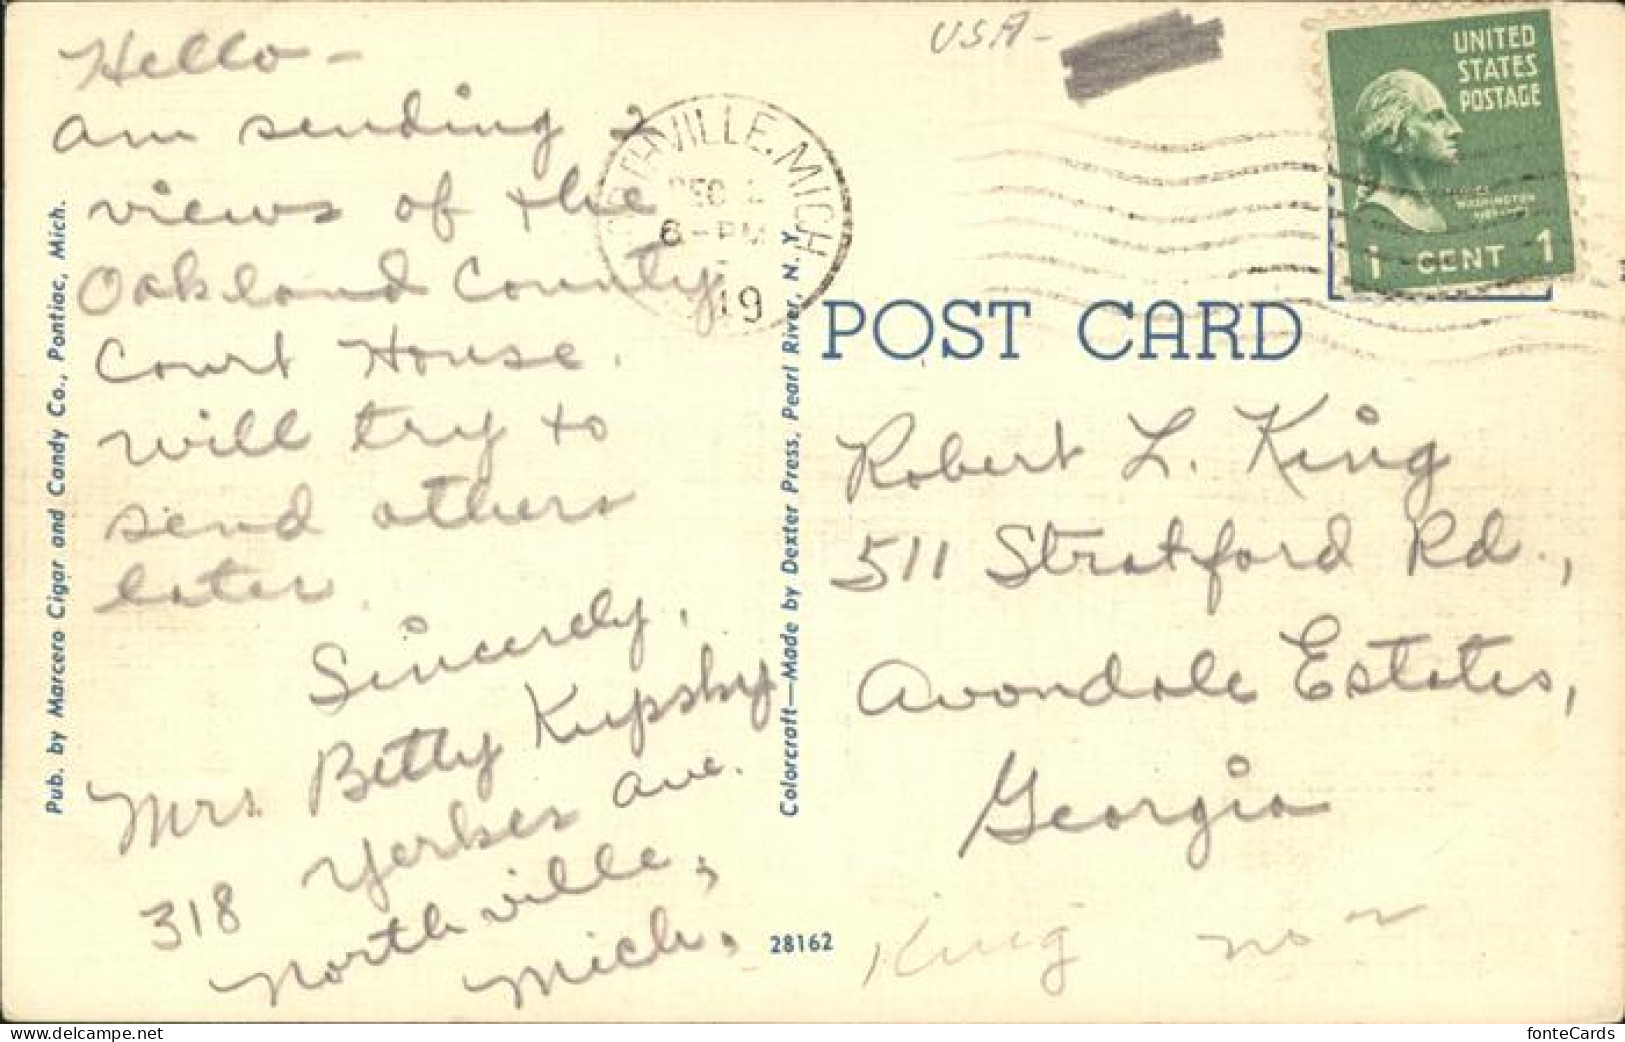 Hello -
am sending 2
views of the
Oakland County
Court House.
will try to
send others
later.
Sincerely,
Mrs. Betty Kupsky
318 Yerkes Ave.
Northville,
Mich.
Pub. by Marcero Cigar and Candy Co., Pontiac, Mich.
Colorcraft—Made by Dexter Press, Pearl River, N. Y.
28162
USA-
VILLE, MICH
DEC
6-PM
19
UNITED
STATES
POSTAGE
WASHINGTON
1 CENT 1
POST CARD
Robert L. King
511 Stratford Rd.,
Avondale Estates,
Georgia
King no
www.delcampe.net
fonteCards